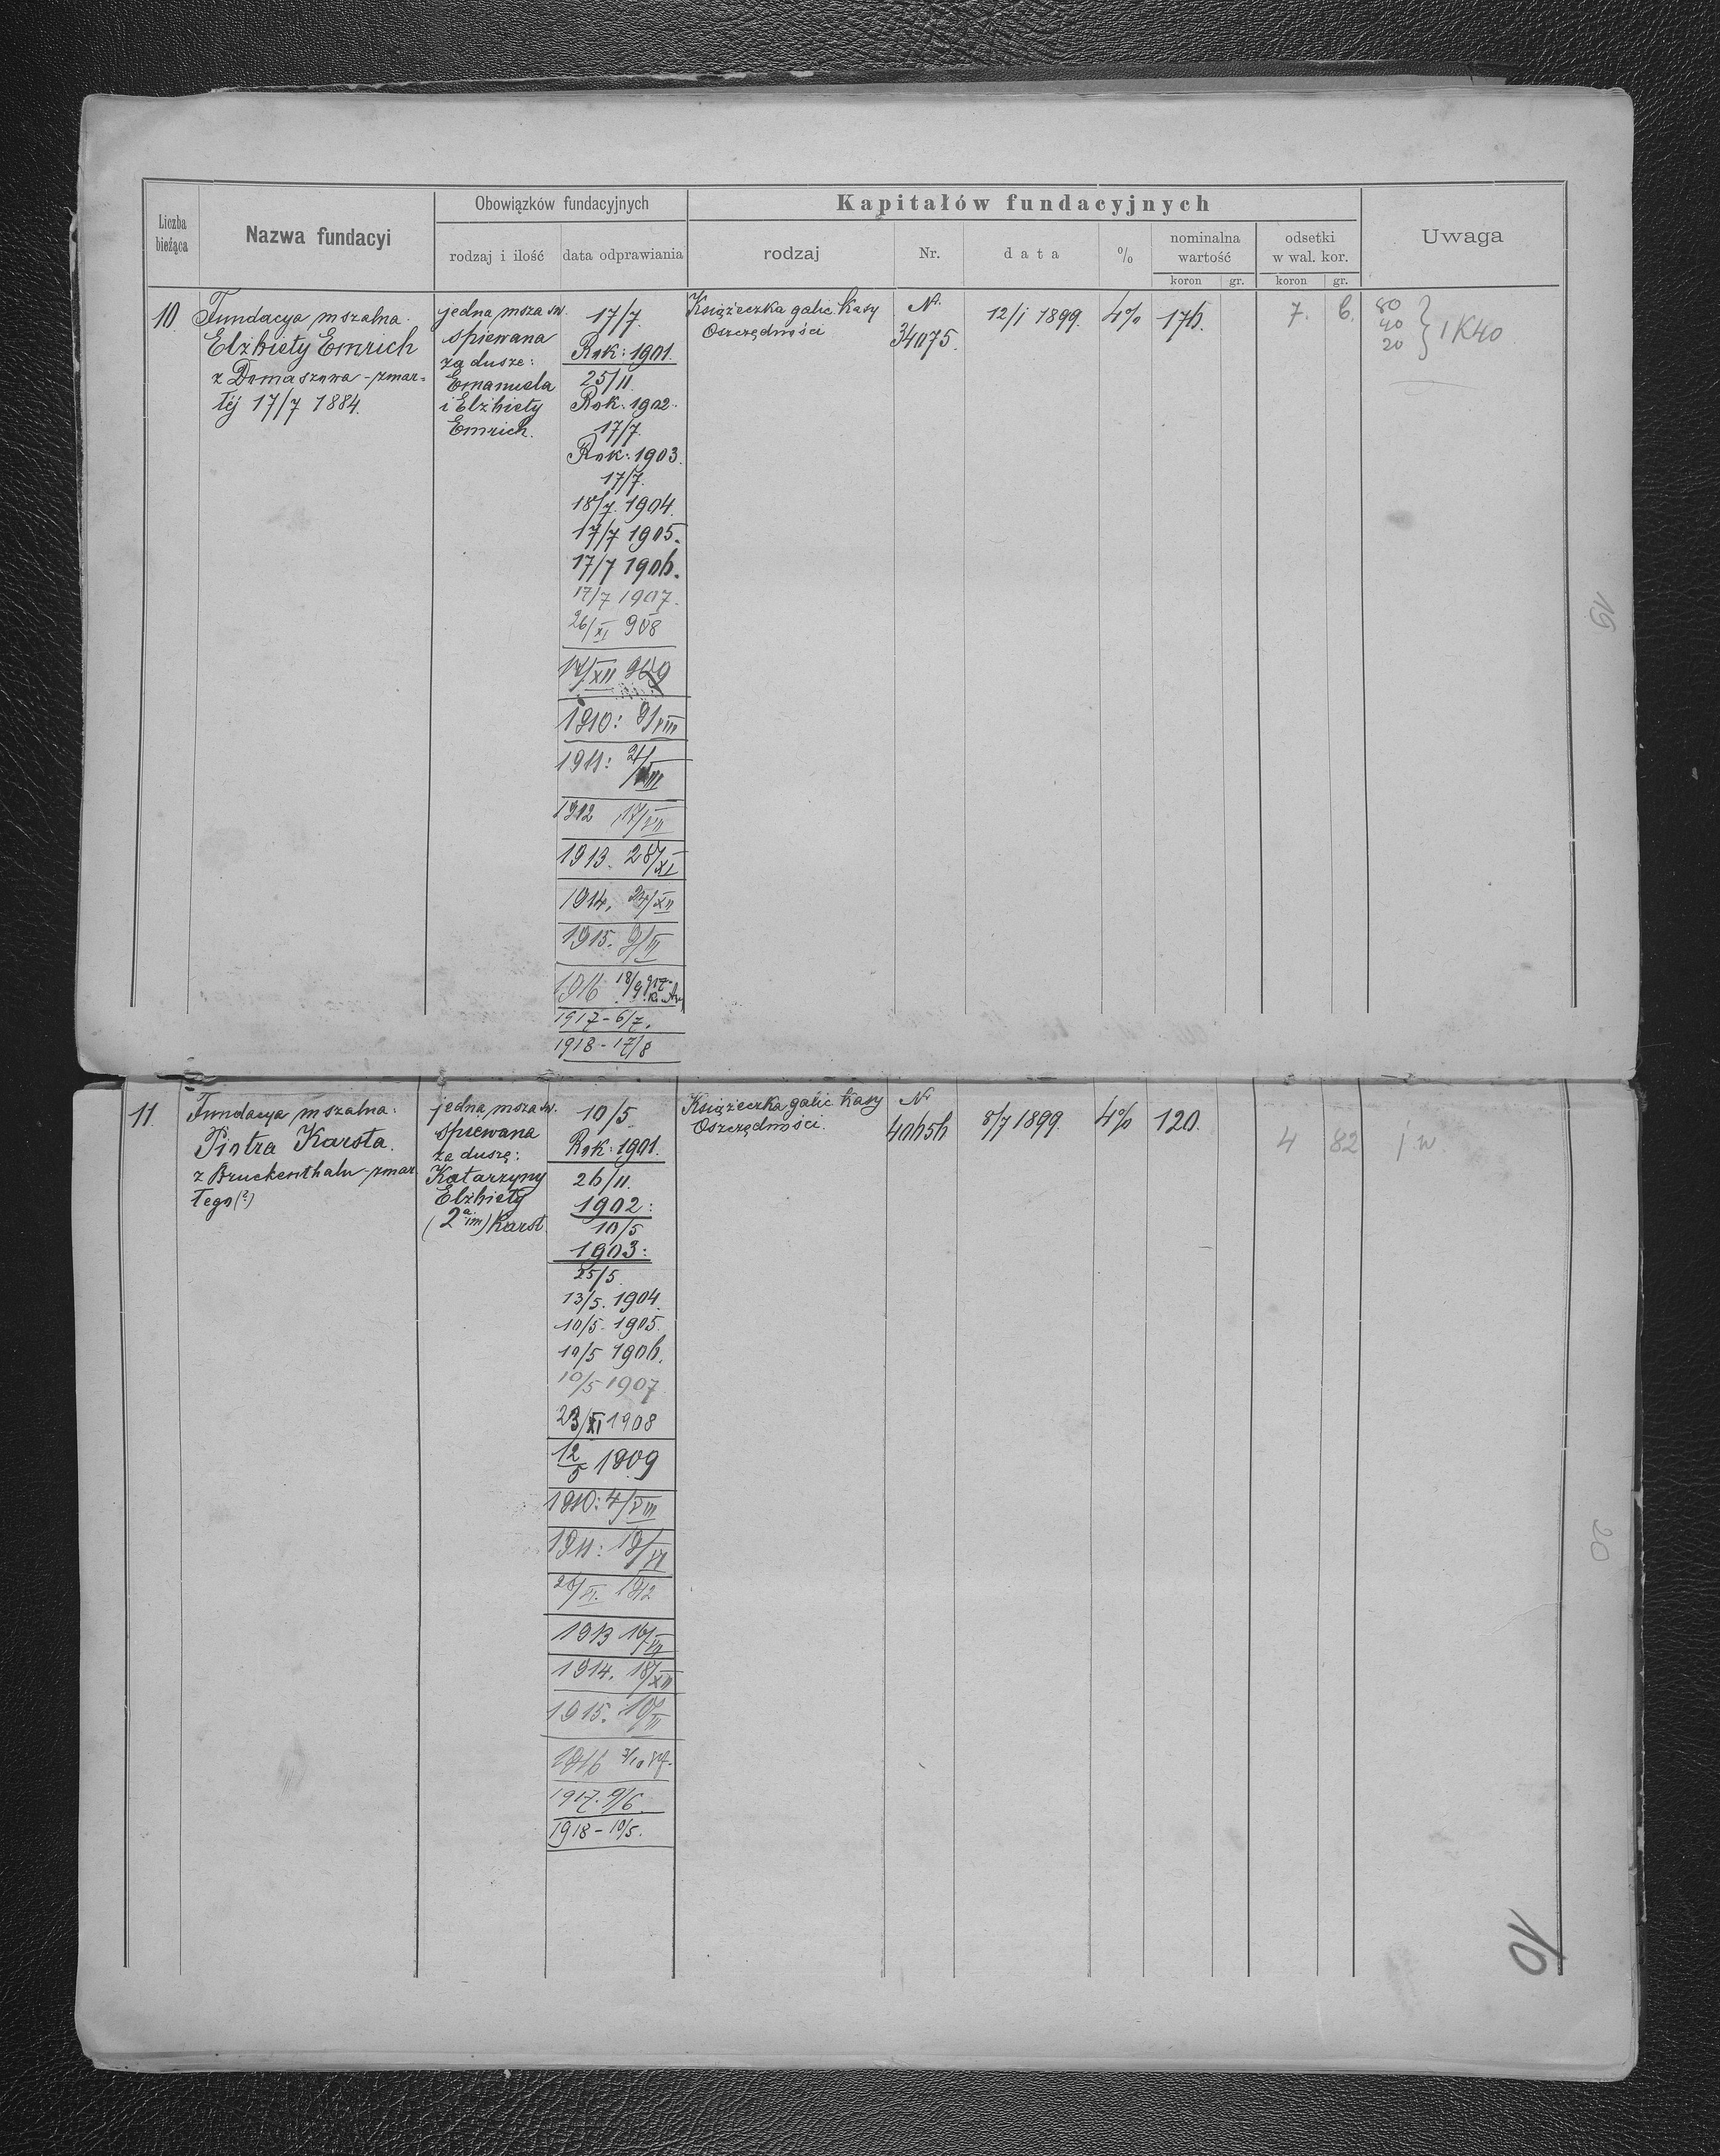 Liczba bieżąca
Nazwa fundacyi
Obowiązków fundacyjnych
rodzaj i ilość
data odprawiania
Kapitałów fundacyjnych
rodzaj
Nr.
data
%
nominalna wartość
koron gr.
odsetki w wal. kor.
koron gr.
Uwaga
10.
Fundacya mszalna
Elżbiety Emrich
z Domaszowa - zmar=
łej 17/7 1884.
jedna msza św.
śpiewana
za dusze:
Emanuela
i Elżbiety
Emrich.
17/7.
Rok: 1901.
25/11.
Rok: 1902.
17/7.
Rok: 1903.
17/7.
18/7. 1904.
17/7 1905.
17/7 1906.
17/7 1907.
26/XI 908
17/XII 909
1910: 9/VIII
1911: 21/VIII
1912 17/VII
1913. 28/XI
1914. /XII
1915. 9/VI
1916 18/9
1917 - 6/7.
1918 - 17/8
Książeczka galic. Kasy
Oszczędności
Nr.
34075.
12/1 1899.
4%
176.
7. 6.
80
40
20
} 1K40
19
11.
Fundacya mszalna:
Piotra Karsta.
z Bruckenthalu - zmar
łego (?)
jedna msza św.
śpiewana
za duszę:
Katarzyny
Elżbiety
(2a im) Karst
10/5.
Rok: 1901.
26/11.
1902:
10/5
1903:
25/5.
13/5. 1904.
10/5. 1905.
10/5 1906.
10/5 1907
23/XI 1908
12/5 1909
1910: 4/VIII
1911: 19/VI
/VI. 1912
1913 16/VII
1914. 18/XII
1915. 10/VI
1916 3/10
1917. 9/6
1918 - 10/5.
Książeczka galic. Kasy
Oszczędności.
Nr
40656
8/7 1899.
4%
120.
4 82
j. w.
20
10